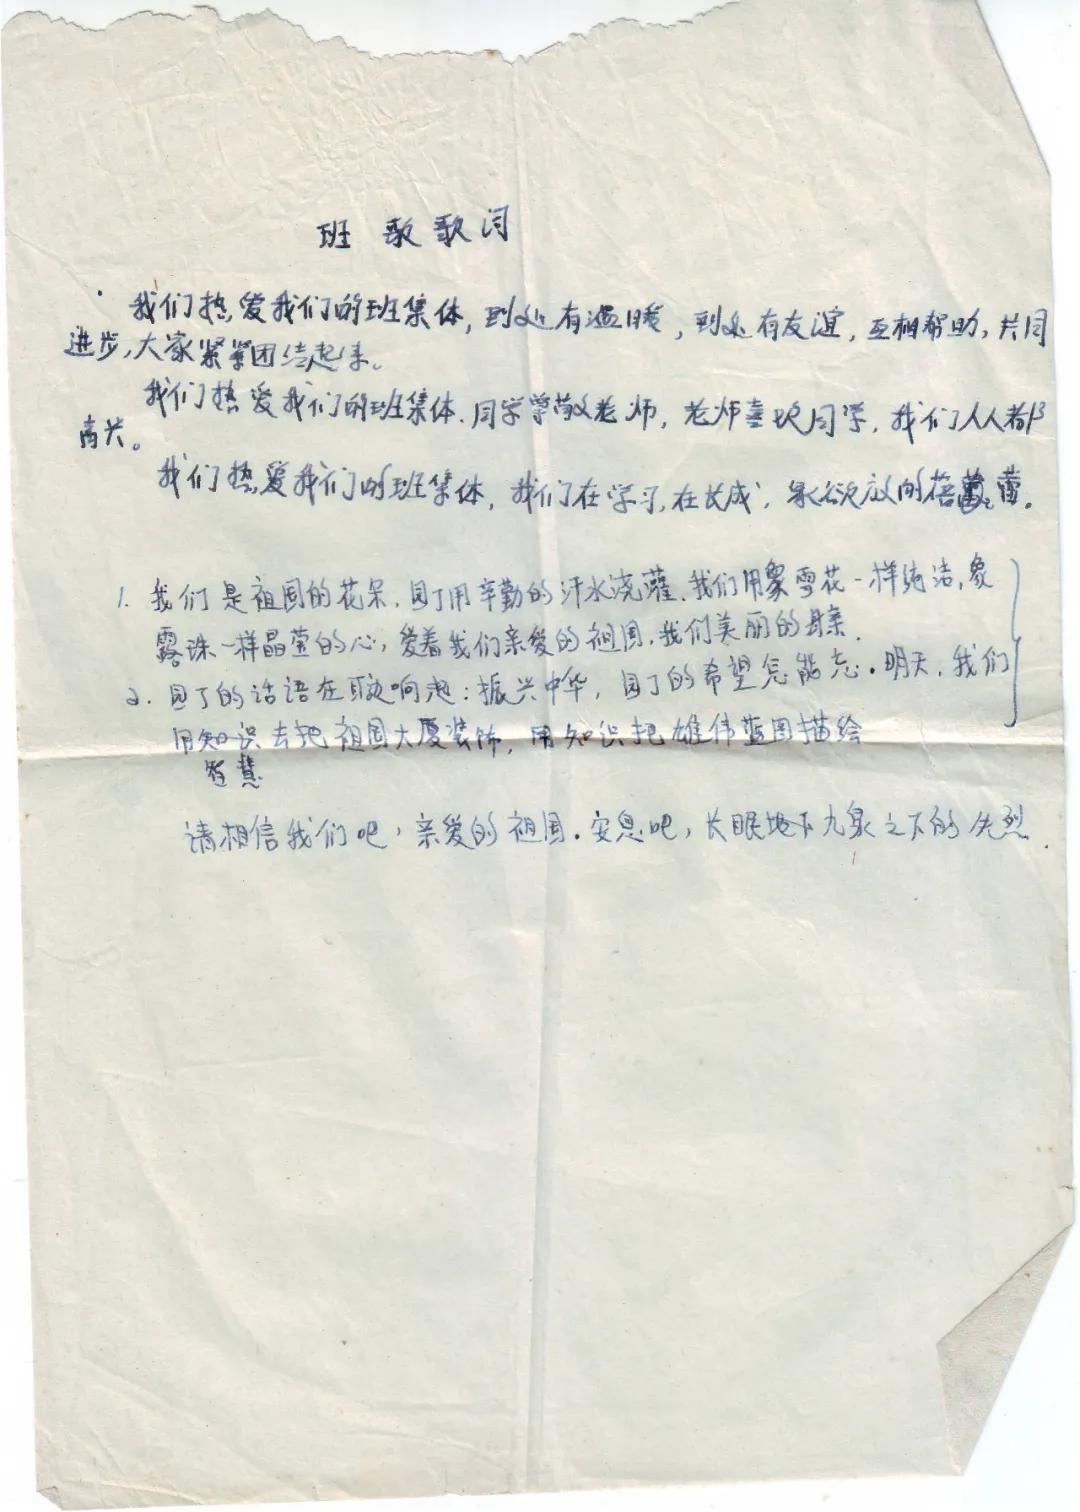 班歌歌词
我们热爱我们的班集体,到处有温暖,到处有友谊,互相帮助,共同
进步,大家紧紧团结起来。
我们热爱我们的班集体.同学尊敬老师,老师喜欢同学,我们人人都
高兴。
我们热爱我们的班集体,我们在学习,在长成,象欲放的蓓蕾。
1. 我们是祖国的花朵.园丁用辛勤的汗水浇灌.我们用象雪花一样纯洁,象
露珠一样晶莹的心,爱着我们亲爱的祖国.我们美丽的母亲.
2. 园丁的话语在耳边响起:振兴中华,园丁的希望怎能忘.明天,我们
用知识去把祖国大厦装饰,用知识把雄伟蓝图描绘
智慧
请相信我们吧,亲爱的祖国.安息吧,长眠地下九泉之下的先烈.